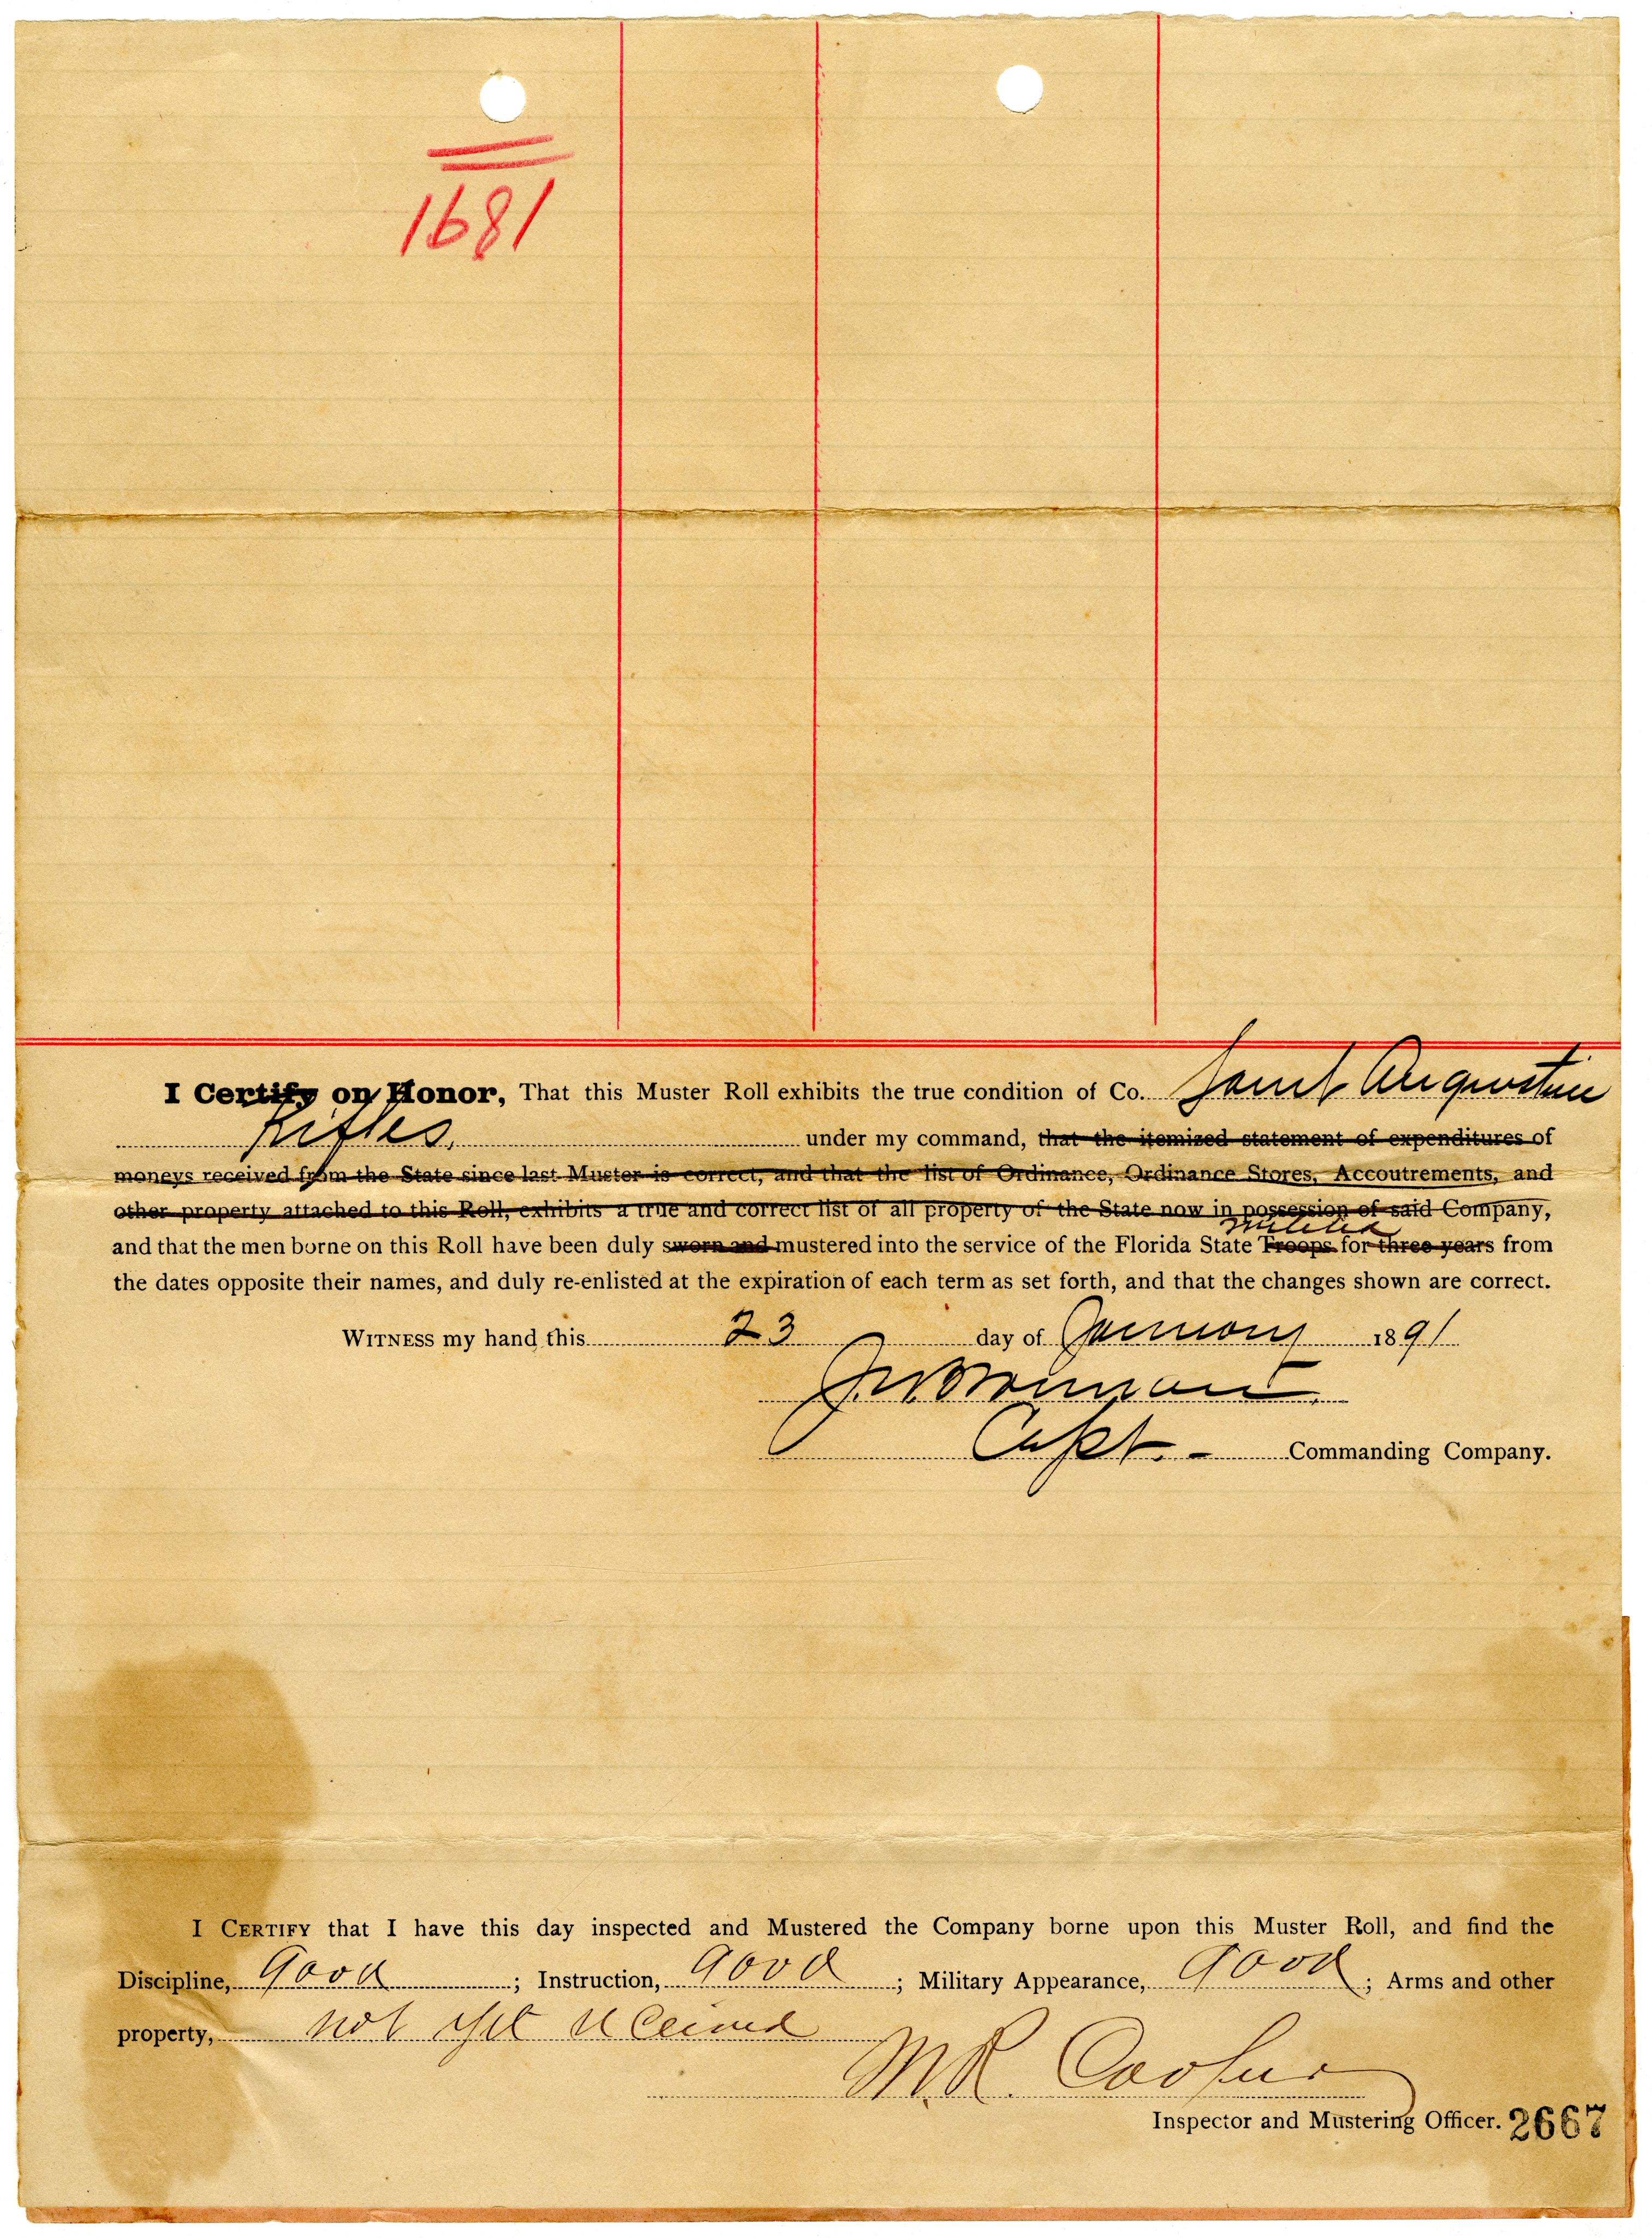 1681
I Certify on Honor, That this Muster Roll exhibits the true condition of Co. Saint Augustine
Rifles, under my command, that the itemized statement of expenditures of
moneys received from the State since last Muster is correct, and that the list of Ordinance, Ordinance Stores, Accoutrements, and
other property attached to this Roll, exhibits a true and correct list of all property of the State now in possession of said Company,
militia
and that the men borne on this Roll have been duly sworn and mustered into the service of the Florida State Troops for three years from
the dates opposite their names, and duly re-enlisted at the expiration of each term as set forth, and that the changes shown are correct.
WITNESS my hand this 23 day of January 1891
Capt. - Commanding Company.
I CERTIFY that I have this day inspected and Mustered the Company borne upon this Muster Roll, and find the
Discipline, good ; Instruction, good ; Military Appearance, good ; Arms and other
property, not yet received
M.R. Cooper
Inspector and Mustering Officer. 2667